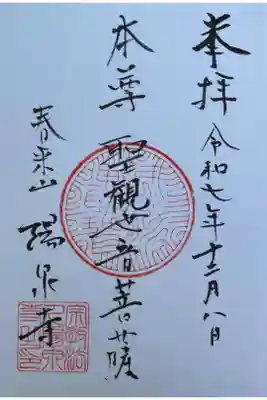 奉拝 令和七年十二月八日
本尊 聖観世音菩薩
春来山 瑞泉寺